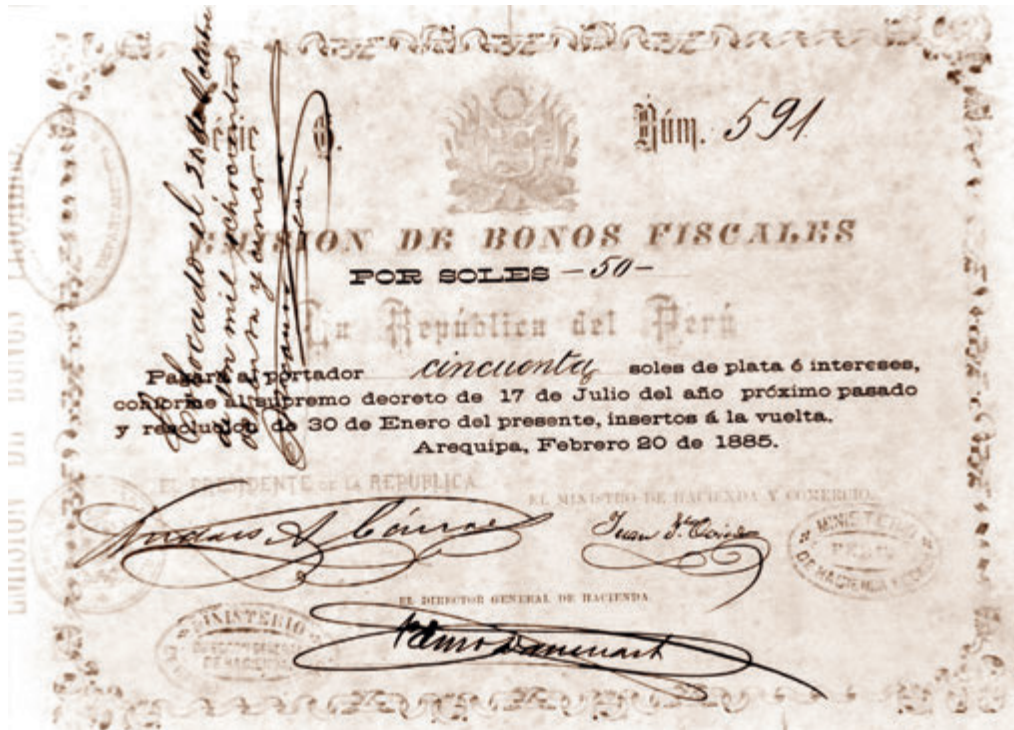 Série
Núm. 591
EMISION DE BONOS FISCALES
POR SOLES - 50 -
La República del Perú
Pagará al portador cincuenta soles de plata é intereses,
conforme al supremo decreto de 17 de Julio del año próximo pasado
y resolucion de 30 de Enero del presente, insertos á la vuelta.
Arequipa, Febrero 20 de 1885.
EL PRESIDENTE DE LA REPUBLICA
EL MINISTRO DE HACIENDA Y COMERCIO.
MINISTERIO
DE HACIENDA Y
EL DIRECTOR GENERAL DE HACIENDA
MINISTERIO
DE HACIENDA
EMISION DE BONOS
de mil ochocientos
ochenta y cinco